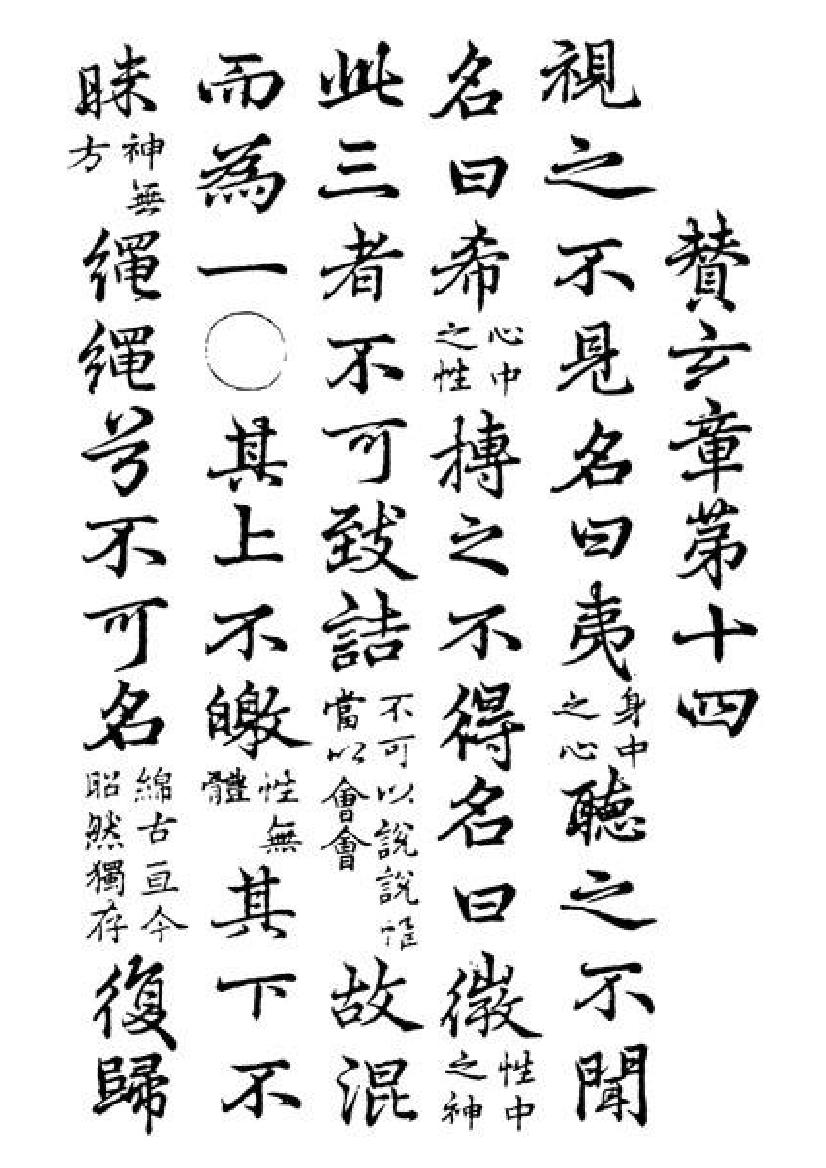 贊玄章第十四
視之不見名曰夷身中之心聽之不聞
名曰希心中之性搏之不得名曰微性中之神
此三者不可致詰不可以說說惟當以會會故混
而為一〇其上不皦性無體其下不
昧神無方繩繩兮不可名綿古亘今昭然獨存復歸